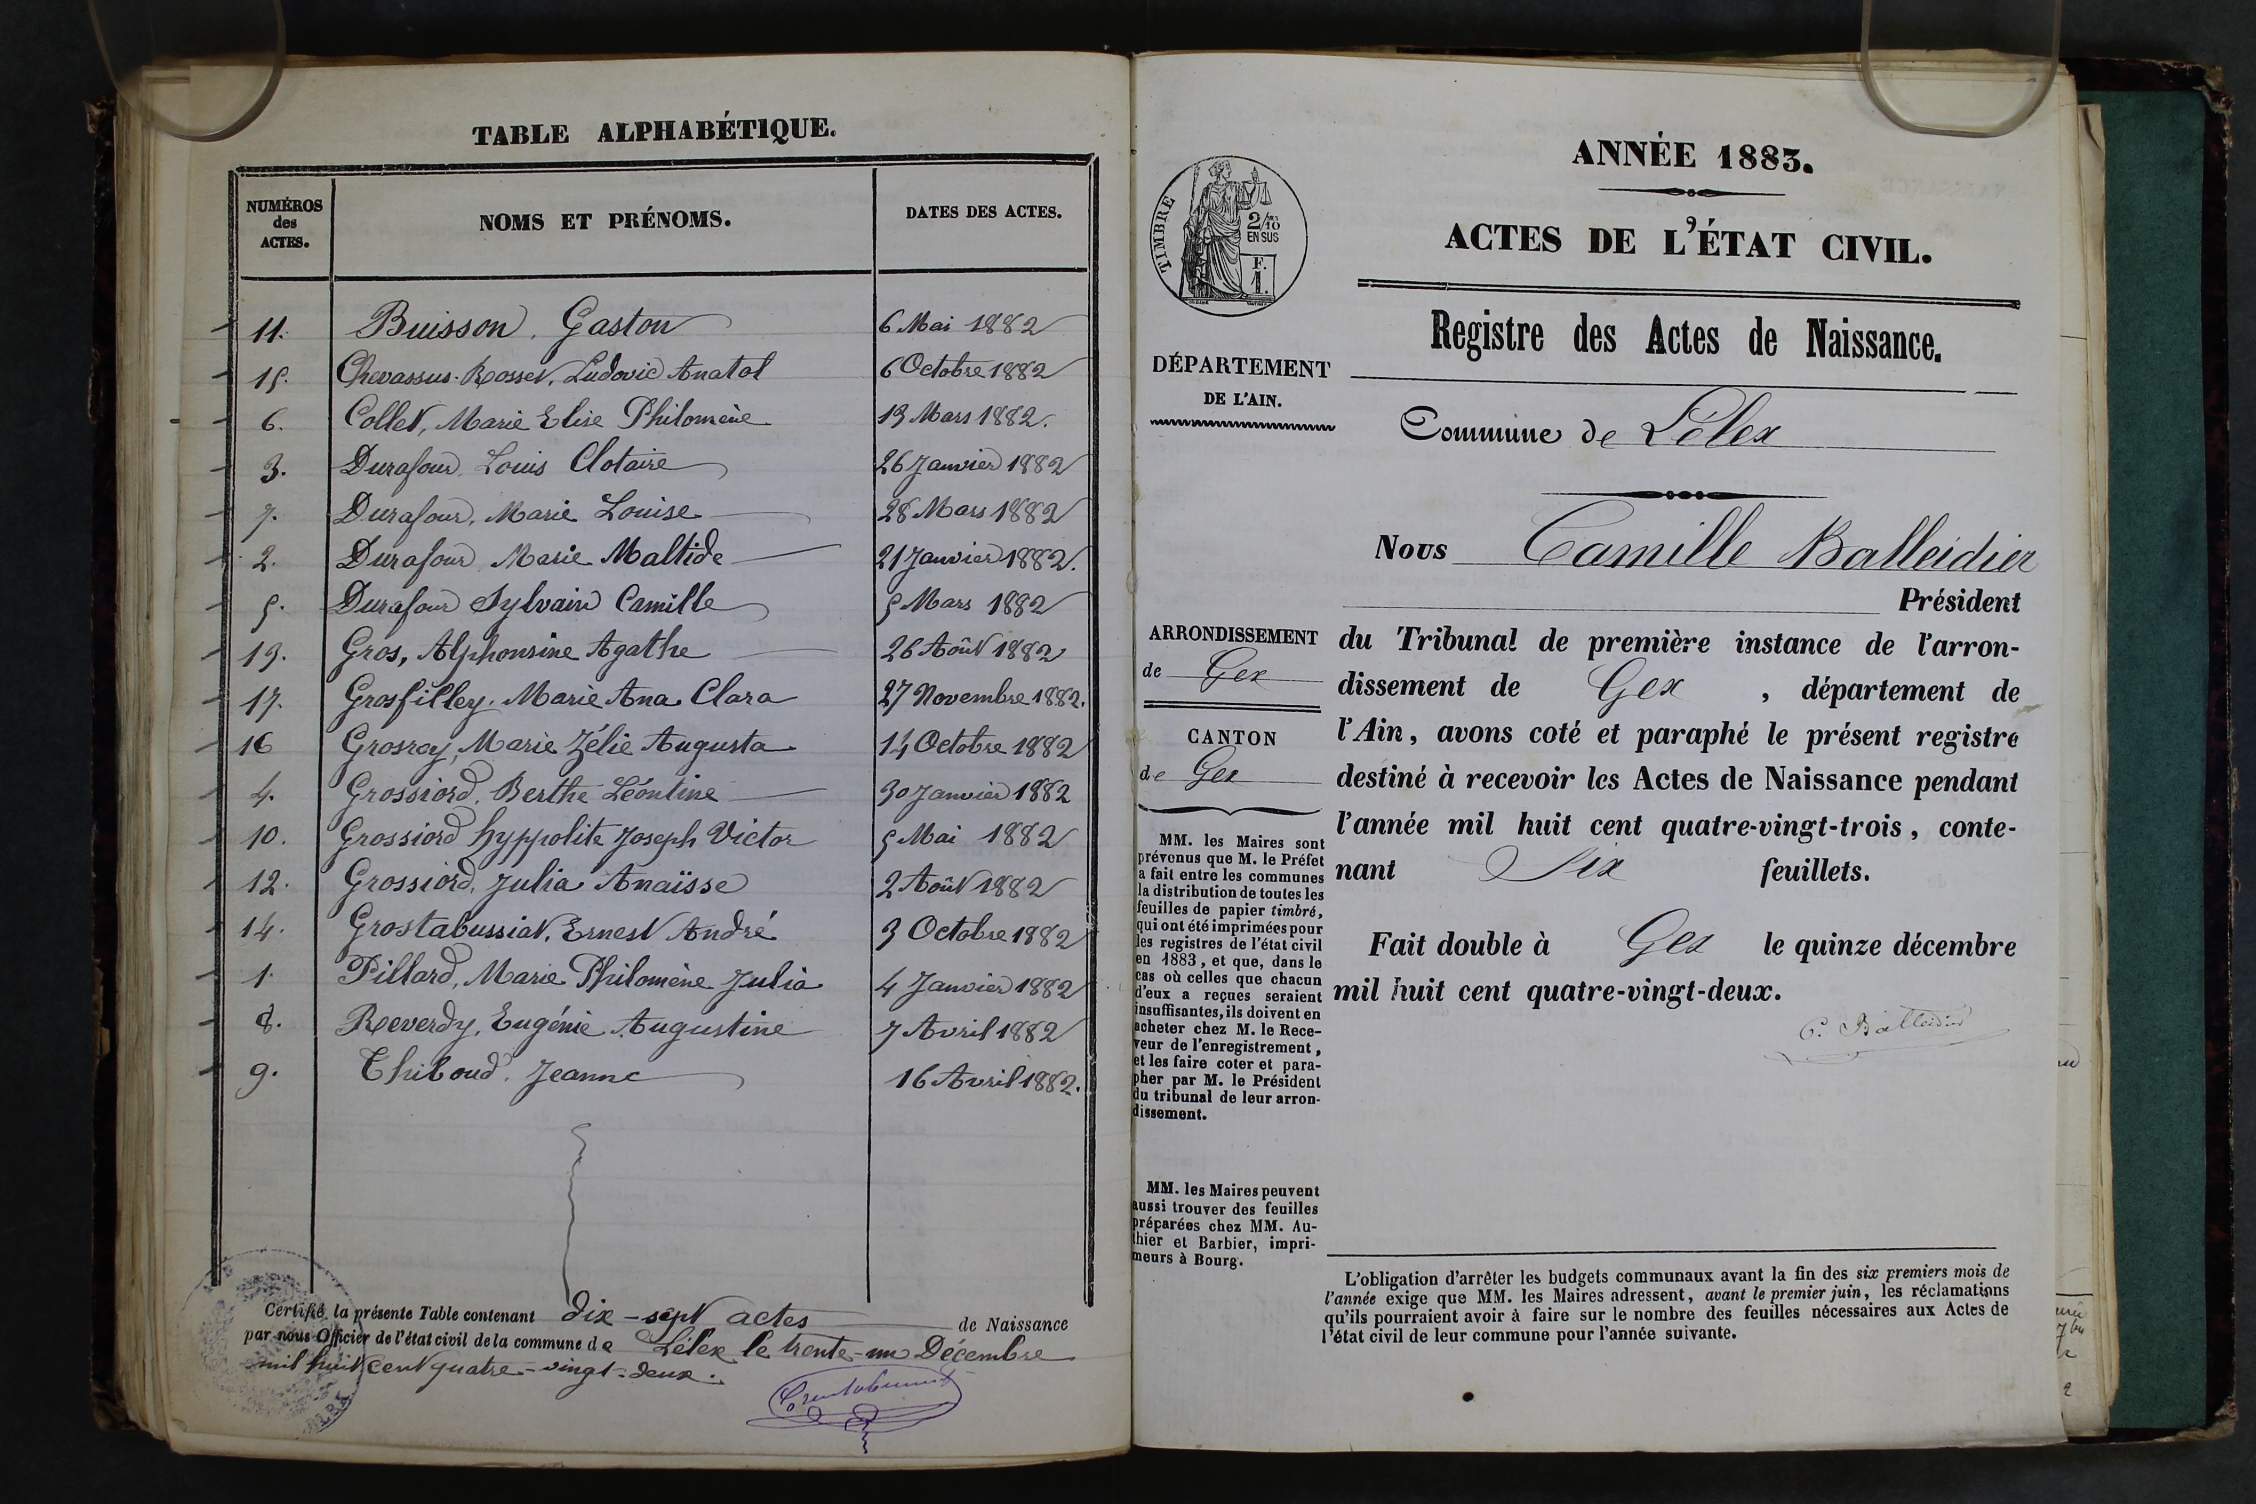 TABLE ALPHABÉTIQUE.
NUMÉROS des ACTES.
NOMS ET PRÉNOMS.
DATES DES ACTES.
11. Buisson, Gaston 6 Mai 1882
15. Chevassus-Rosset, Ludovic Anatol 6 Octobre 1882
6. Collet, Marie Elise Philomène 13 Mars 1882.
3. Durafour Louis Clotaire 26 Janvier 1882
7. Durafour, Marie Louise 28 Mars 1882
2. Durafour Marie Maltide 21 Janvier 1882.
5. Durafour Sylvain Camille 5 Mars 1882
13. Gros, Alphonsine Agathe 26 Août 1882
17. Grosfilley, Marie Ana Clara 27 Novembre 1882.
16 Grosroy, Marie Zélie Augusta 14 Octobre 1882
4. Grossiord, Berthe Léontine 30 Janvier 1882
10. Grossiord hyppolite Joseph Victor 5 Mai 1882
12. Grossiord, Julia Anaïsse 2 Août 1882
14. Grostabussiat, Ernest André 3 Octobre 1882
1. Pillard, Marie Philomène Julia 4 Janvier 1882
8. Reverdy, Eugénie Augustine 7 Avril 1882
9. Thiboud, Jeanne 16 Avril 1882.
Certifié la présente Table contenant dix-sept actes de Naissance
par nous Officier de l'état civil de la commune de Lélex le trente-un Décembre
mil huit cent quatre-vingt-deux.
TIMBRE
2/10
EN SUS
F.
1.
DÉPARTEMENT
DE L'AIN.
ARRONDISSEMENT
de Gex
CANTON
de Gex
MM. les Maires sont
prévenus que M. le Préfet
a fait entre les communes
la distribution de toutes les
feuilles de papier timbré,
qui ont été imprimées pour
les registres de l'état civil
en 1883, et que, dans le
cas où celles que chacun
d'eux a reçues seraient
insuffisantes, ils doivent en
acheter chez M. le Rece-
veur de l'enregistrement,
et les faire coter et para-
pher par M. le Président
du tribunal de leur arron-
dissement.
MM. les Maires peuvent
aussi trouver des feuilles
préparées chez MM. Au-
thier et Barbier, impri-
meurs à Bourg.
ANNÉE 1883.
ACTES DE L'ÉTAT CIVIL.
Registre des Actes de Naissance.
Commune de Lélex
Nous Camille Balleidier
Président
du Tribunal de première instance de l'arron-
dissement de Gex, département de
l'Ain, avons coté et paraphé le présent registre
destiné à recevoir les Actes de Naissance pendant
l'année mil huit cent quatre-vingt-trois, conte-
nant Six feuillets.
Fait double à Gex le quinze décembre
mil huit cent quatre-vingt-deux.
C. Balleidier
L'obligation d'arrêter les budgets communaux avant la fin des six premiers mois de
l'année exige que MM. les Maires adressent, avant le premier juin, les réclamations
qu'ils pourraient avoir à faire sur le nombre des feuilles nécessaires aux Actes de
l'état civil de leur commune pour l'année suivante.